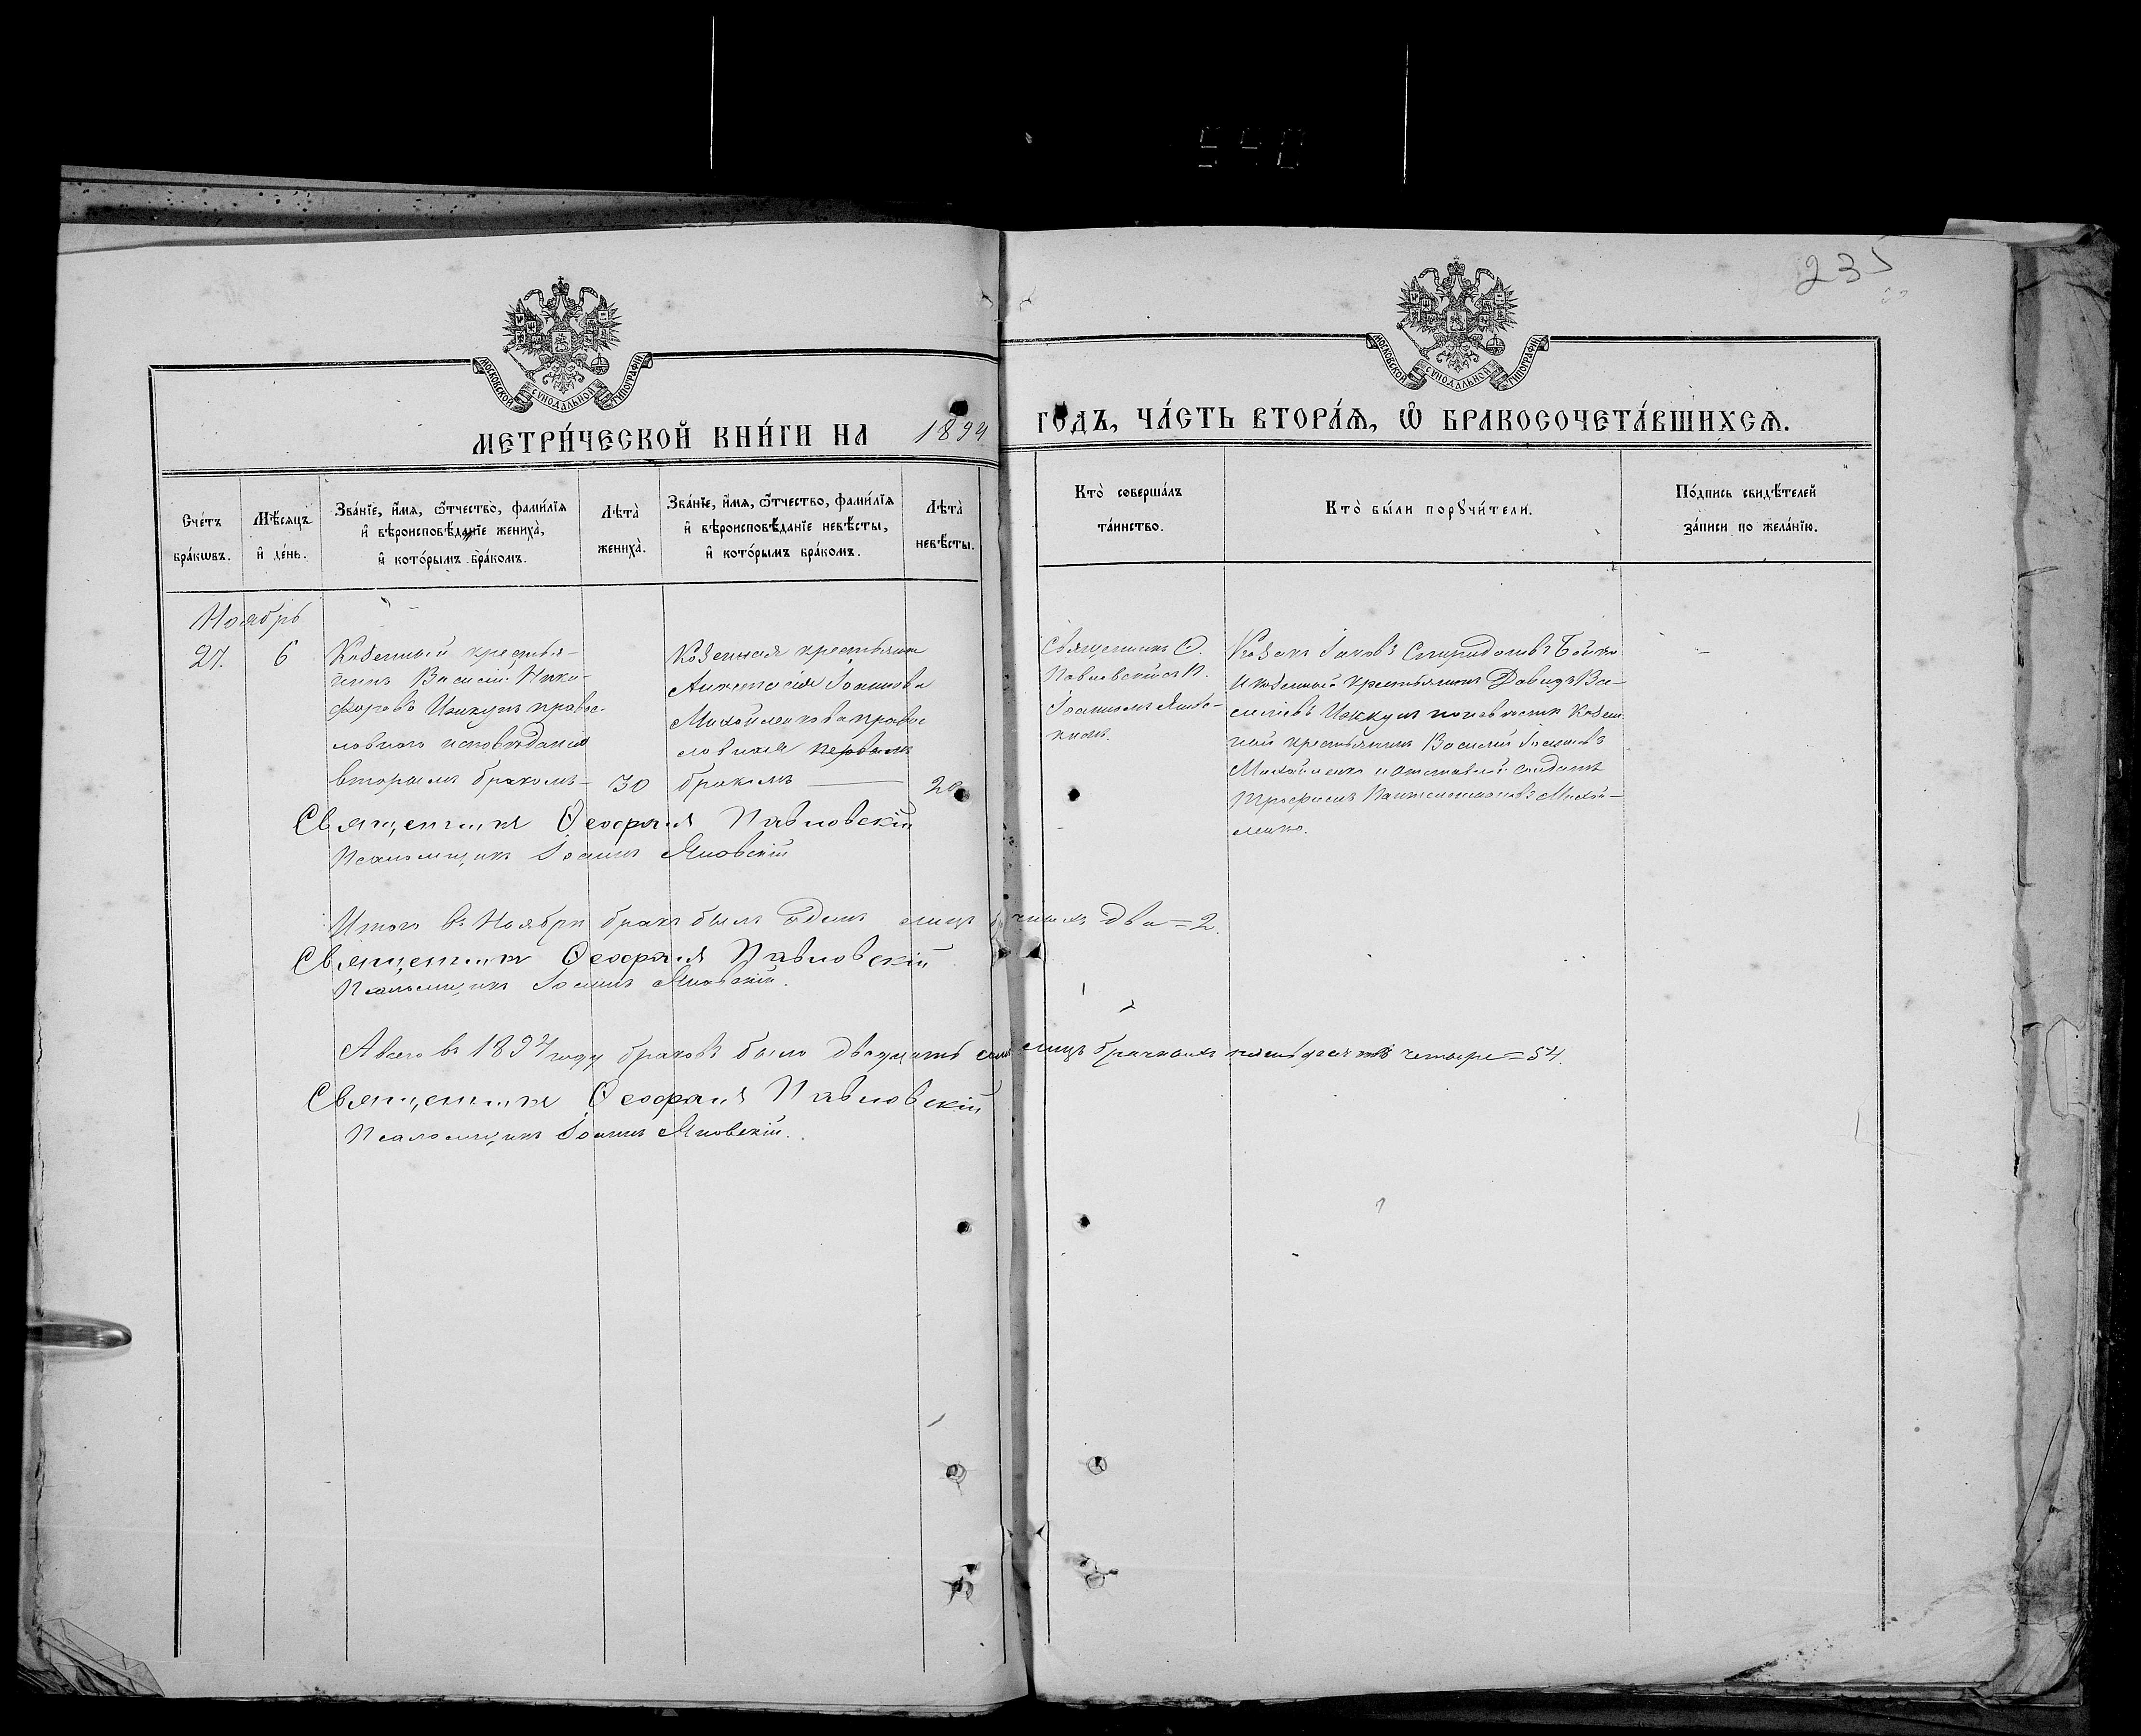 540
235
МОСКОВСКОЙ СѴНОДАЛЬНОЙ ТИПОГРАФІИ
МОСКОВСКОЙ СѴНОДАЛЬНОЙ ТИПОГРАФІИ
МЕТРИ́ЧЕСКОЙ КНИ́ГИ НА 1894 ГОДЪ, ЧА́СТЬ ВТОРА́Ѧ, Ѽ БРАКОСОЧЕТА́ВШИХСѦ.
Сче́тъ
бра́кѡвъ.
Мѣ́сяцъ
и҆ де́нь.
Зва́нїе, и҆́мя, ѻ҆́тчество, фами́лїя
и҆ вѣроисповѣ́данїе жениха̀,
и҆ кото́рымъ бра́комъ.
Лѣта̀
жениха̀.
Зва́нїе, и҆́мя, ѻ҆́тчество, фами́лїя
и҆ вѣроисповѣ́данїе невѣ́сты,
и҆ кото́рымъ бра́комъ.
Лѣта̀
невѣ́сты.
Кто̀ соверша́лъ
та́инство.
Кто̀ бы́ли порꙋчи́тели.
По́дпись свидѣ́телей
за́писи по жела́нїю.
Ноябрь
27.
6
Казенный крестья-
нинъ Василій Ники-
форовъ правос-
лавнаго исповѣданія
вторымъ бракомъ-
30
Казенная крестьянка
Анастасія Іоаннова
Михайленкова правос
лавная первымъ
бракомъ
20
Священникъ Ѳ.
Павловскій съ П.
Іоанномъ Янов-
скимъ.
Козакъ Іаковъ Спиридоновъ Бойко
и казенный крестьянинъ Давидъ Ва-
силіевъ по невѣстѣ казен
ный крестьянинъ Василій Іоанновъ
Михайленко и отставной солдатъ
Трофимъ Михай-
ленко.
Священникъ Ѳеофилъ Павловскій
Псаломщикъ Іоаннъ Яновскій
Итого въ Ноябрѣ бракъ былъ одинъ лицъ брачныхъ два = 2.
Священникъ Ѳеофилъ Павловскій
Псаломщикъ Іоаннъ Яновскій.
А всего въ 1894 году браковъ было двадцать семь лицъ брачныхъ пятьдесятъ четыре = 54.
Священникъ Ѳеофилъ Павловскій
Псаломщикъ Іоаннъ Яновскій.